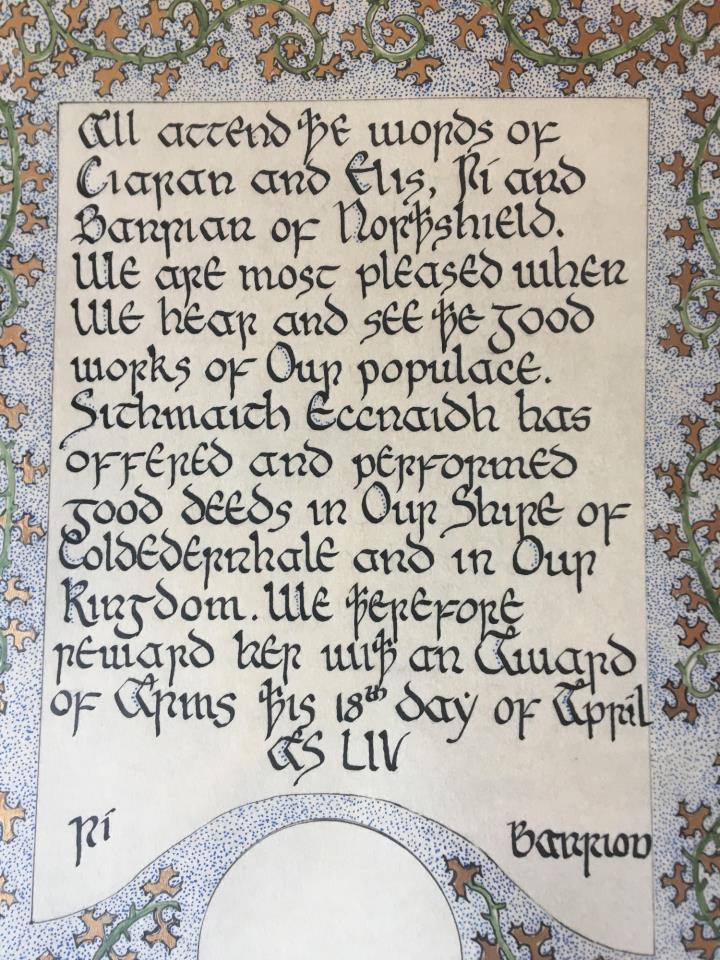 All attend þe words of
Ciaran and Elis, Rí and
Banrian of Norþshield.
We are most pleased when
We hear and see þe good
works of Our populace.
Sithmaith Eccnaidh has
offered and performed
good deeds in Our Shire of
Coldedernhale and in Our
Kingdom. We þerefore
reward her wiþ an Award
of Arms þis 18th day of April
AS LIV
Rí Banrion